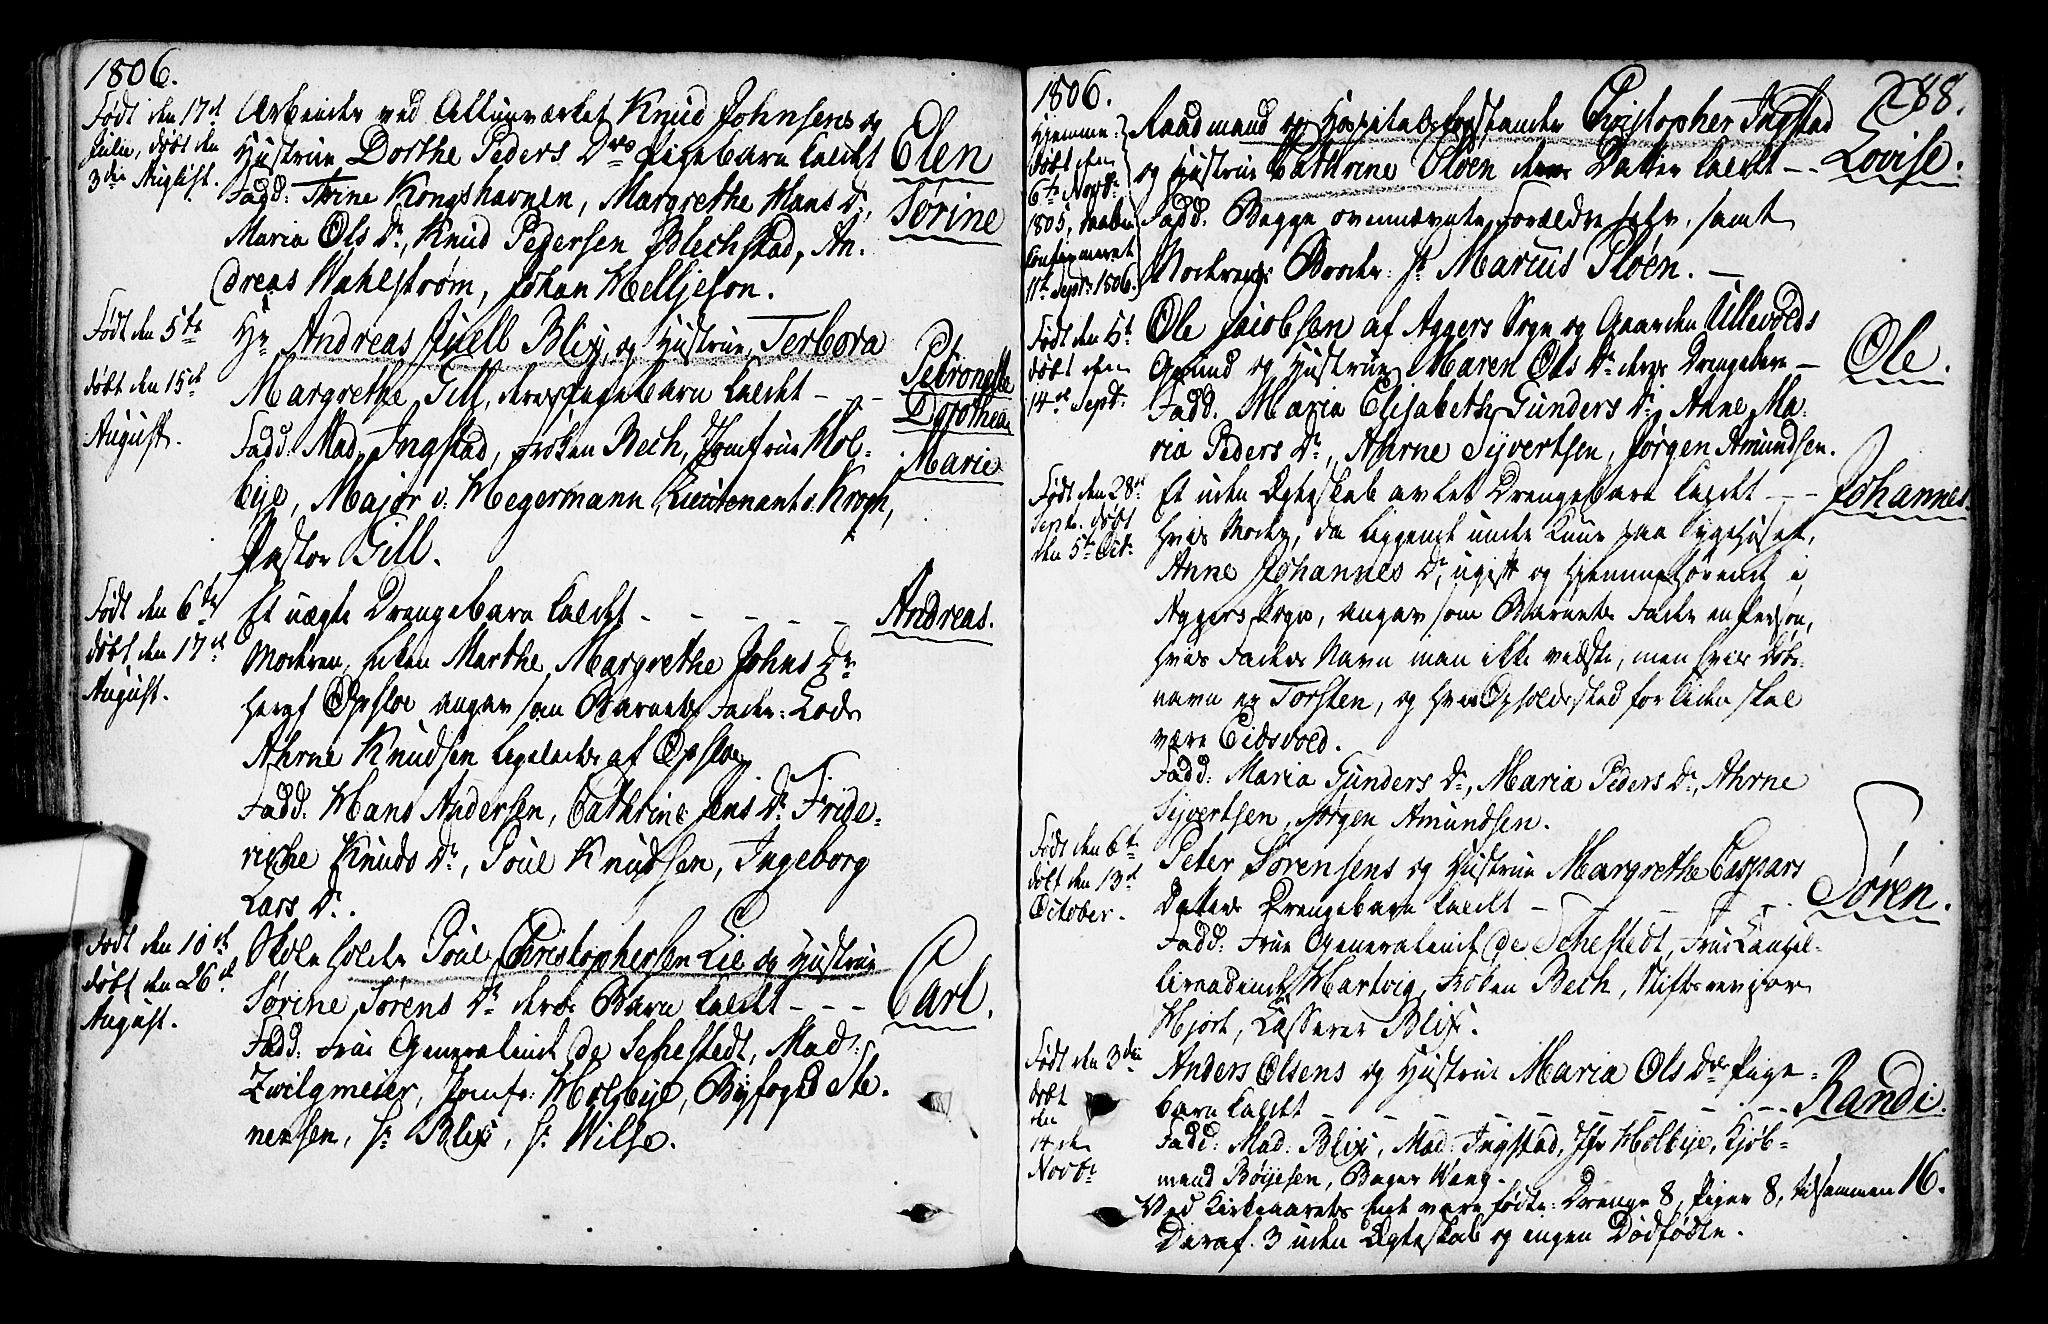 1806.
Født den 17de
Julii, døbt den
3die August.
Arbeider ved Allunværket Knud Johnsens og
Hustrue Dorthe Peders Drs Pigebarn kaldt
Elen
Sørine
Fadd: Thrine Kongshavnen, Margrethe Hans Dr,
Maria Ols Dr, Knud Pedersen Blechstad, An-
dreas Wahlstrøm, Johan Helljeson.
Født den 5te
døbt den 15de
August.
Hr Andreas Juell Blix, og Hustrue, Terbora
Margrethe Gill, deres Pigebarn kaldt - - -
Petronelle
Dorothea
Marie
Fadd: Mad. Ingstad, Frøken Bech, Jomfrue Hol-
bye, Major v: Hegermann, Lieutenant v: Krogh,
Pastor Gill.
Født den 6te
døbt den 17de
August.
Et uægte Drengebarn kaldt - - - - -
Andreas.
Moderen, Enken Marthe Margrethe Johns Dr
her af Opsloe angav som Barnets Fader: Lods
Ahrne Knudsen ligeledes af Opsloe
Fadd: Hans Andersen, Cathrine Jens Dr. Fride-
riche Knuds Dr, Poul Knudsen, Ingeborg
Lars Dr.
Født den 10de
døbt den 26de
August.
Skoleholder Poul Christophersen Lie og Hustrue
Sørine Sørens Dr deres Barn kaldt - - -
Carl.
Fadd: Frue Generalinde de Sehestedt, Mad:
Zwilgmeier, Jomfr: Holbye, Byfogd Ste-
nersen, Hr Blix, Hr Wilse.
1806.
288.
Hjemme-
døbt den
6te Novbr
1805, daaben
Confirmeret
11te Septr 1806.
Raadmand og Hospitalsforstander Christopher Ingstad
og Hustrue Cathrine Ploen deres Datter kaldt - -
Lovise.
Fadd. Begge ovennævnte Forældre selv, samt
Moderens Broder: Hr Marius Ploen. -
Født den 5te
døbt den
14de Septr.
Ole Jacobsen af Aggers Sogn og Gaarden Ullevolds
Grund og Hustrue Maren Ols Dr deres Drengebarn -
Ole.
Fadd. Maria Elisabeth Gunders Dr, Anne Ma-
ria Peders Dr, Ahrne Syvertsen, Jørgen Amundsen.
Født den 28de
Septr. døbt
den 5te Octr.
Et uden Ægteskab avlet Drengebarn kaldt - -
Johannes.
hvis Moder, da liggende under Kuur paa Sygehuset,
Anne Johannes Dr, ugift og hjemmehørende i
Aggers Sogn, angav som Barnets Fader en Person,
hvis Faders Navn man ikke vidste, men hvis Døbe-
navn er Torsten, og hvis Opholdssted for Tiden skal
være Eidsvold.
Fadd: Maria Gunders Dr, Maria Peders Dr, Ahrne
Syvertsen, Jørgen Amundsen.
Født den 6te
døbt den 13de
October.
Peter Sørensens og Hustrue Margrethe Caspars
Datters Drengebarn kaldt - - - - -
Søren.
Fadd: Frue Generalinde de Sehestedt, Frue Cancel-
liraadinde Hartvig, Frøken Bech, Stiftsrevisor
Hjort, Casserer Blix.
Født den 3die
døbt
den
Novbr
Anders Olsens og Hustrue Maria Ols Drs Pige-
barn kaldt - - - - - - -
Randi.
Fadd: Mad: Blix, Mad: Ingstad, Jfr Holbye, Kjøb-
mand Bøyesen, Bager Wang.
Ved Kirkeaarets Ende vare fødte: Drenge 8, Piger 8, tilsammen 16.
Deraf 3 uden Ægteskab og ingen Dødfødte.